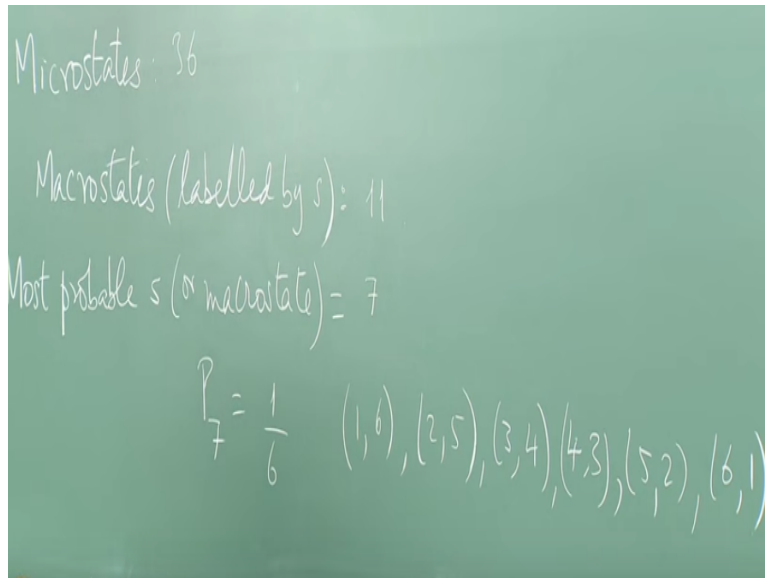 Microstates: 36
Macrostates (labelled by s): 11
Most probable s (or macrostate) = 7
P_7 = 1/6 (1,6), (2,5), (3,4), (4,3), (5,2), (6,1)